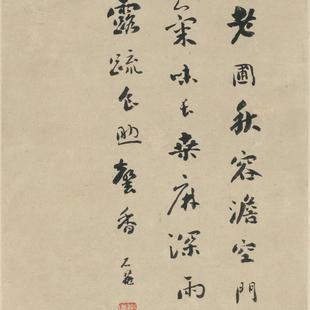 老圃秋容澹空門
氣味長桑麻深雨
露蹠食馨香
石菴